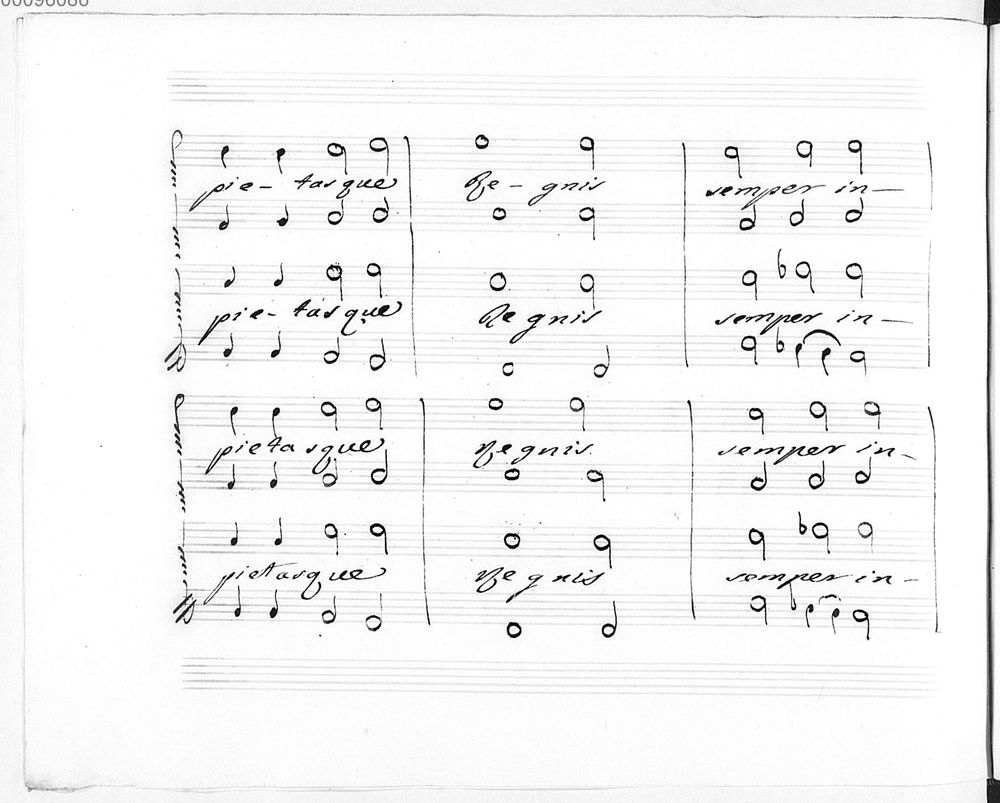 00096086
pie- tasque Re- gnis semper in-
pie- tasque Re gnis semper in-
pietasque Regnis. semper in-
pietasque Regnis semper in-